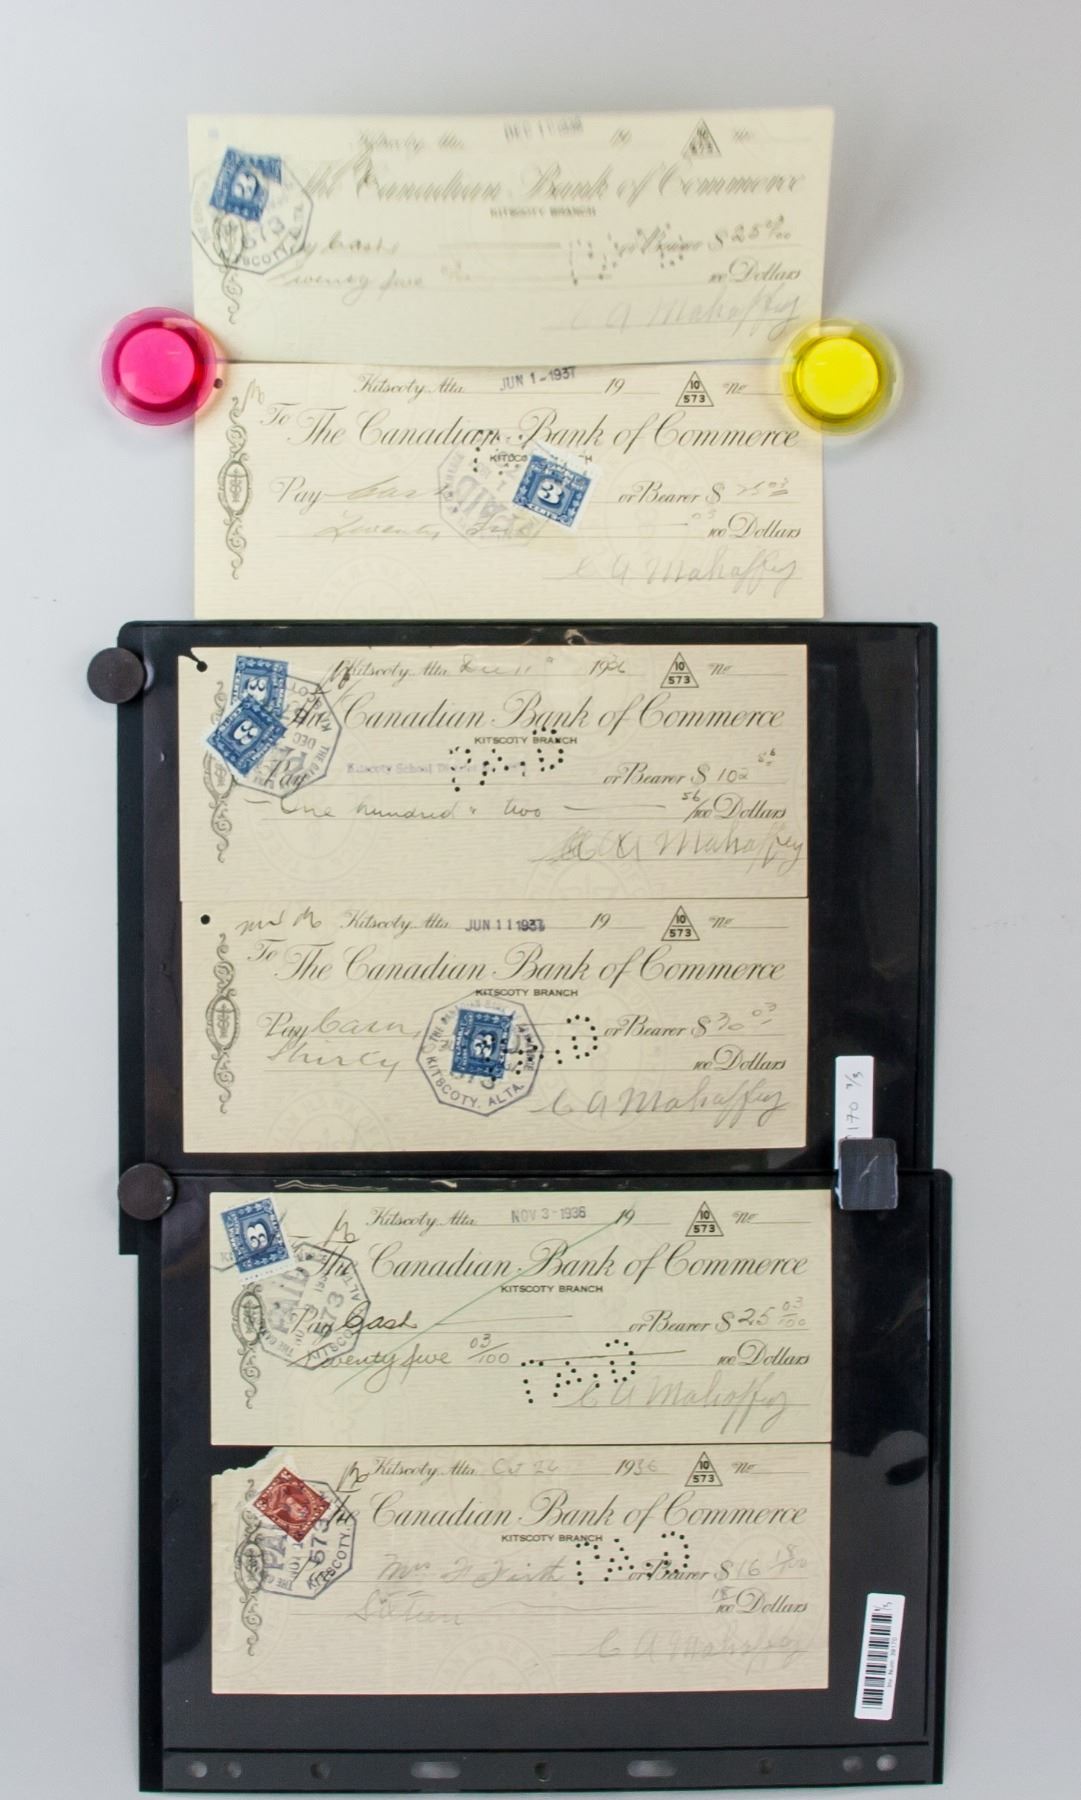 Kitscoty Alta. DEC 1 1936 19 10 573 No
The Canadian Bank of Commerce
KITSCOTY BRANCH
3
Pay Cash or Bearer $ 25
573
KITSCOTY, ALTA.
Twenty five 100 Dollars
C A Mahaffey
Kitscoty Alta. JUN 1-1937 19 10 573 No
To The Canadian Bank of Commerce
3 CENTS
Pay Cash or Bearer $ 25 03
PAID
Twenty Five 03 100 Dollars
C A Mahaffey
Kitscoty Alta. Dec 11 1936 10 573 No
3
Canadian Bank of Commerce
KITSCOTY BRANCH
3
Pay Kitscoty School or Bearer $ 102 56
PAID
One hundred & two 56/100 Dollars
C A Mahaffey
Kitscoty Alta. JUN 11 1937 19 10 573 No
To The Canadian Bank of Commerce
KITSCOTY BRANCH
Pay Cash or Bearer $ 30 03
3
Thirty 100 Dollars
KITSCOTY, ALTA.
C A Mahaffey
170 3/3
Kitscoty Alta. NOV 3-1936 19 10 573 No
3
The Canadian Bank of Commerce
KITSCOTY BRANCH
PAID 573
Pay Cash or Bearer $ 25 03/100
Twenty five 03/100 100 Dollars
PAID
C A Mahaffey
Kitscoty Alta. Oct 26 1936 10 573 No
Canadian Bank of Commerce
KITSCOTY BRANCH
573
KITSCOTY,
PAID
Mrs or Bearer $ 16 18/100
Sixteen 18 100 Dollars
C A Mahaffey